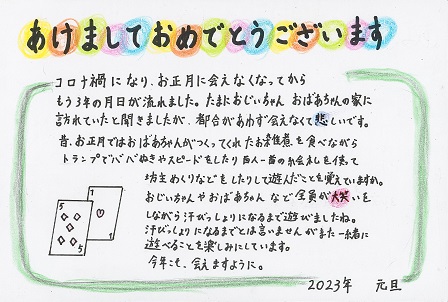 あけましておめでとうございます
コロナ禍になり、お正月に会えなくなってから
もう3年の月日が流れました。たまにおじいちゃん おばあちゃんの家に
訪れていたと聞きましたが、都合があわず会えなくて悲しいです。
昔、お正月ではおばあちゃんがつくってくれたお雑煮を食べながら
トランプでババぬきやスピードをしたり 百人一首の絵会札を使って
坊主めくりなどをしたりして遊んだことを覚えていますか。
おじいちゃんやおばあちゃんなど全員が大笑いを
しながら汗びっしょりになるまで遊びましたね。
汗びっしょりになるまでとは言いませんがまた一緒に
遊べることを楽しみにしています。
今年こそ、会えますように。
5
5
1
2023年 元旦